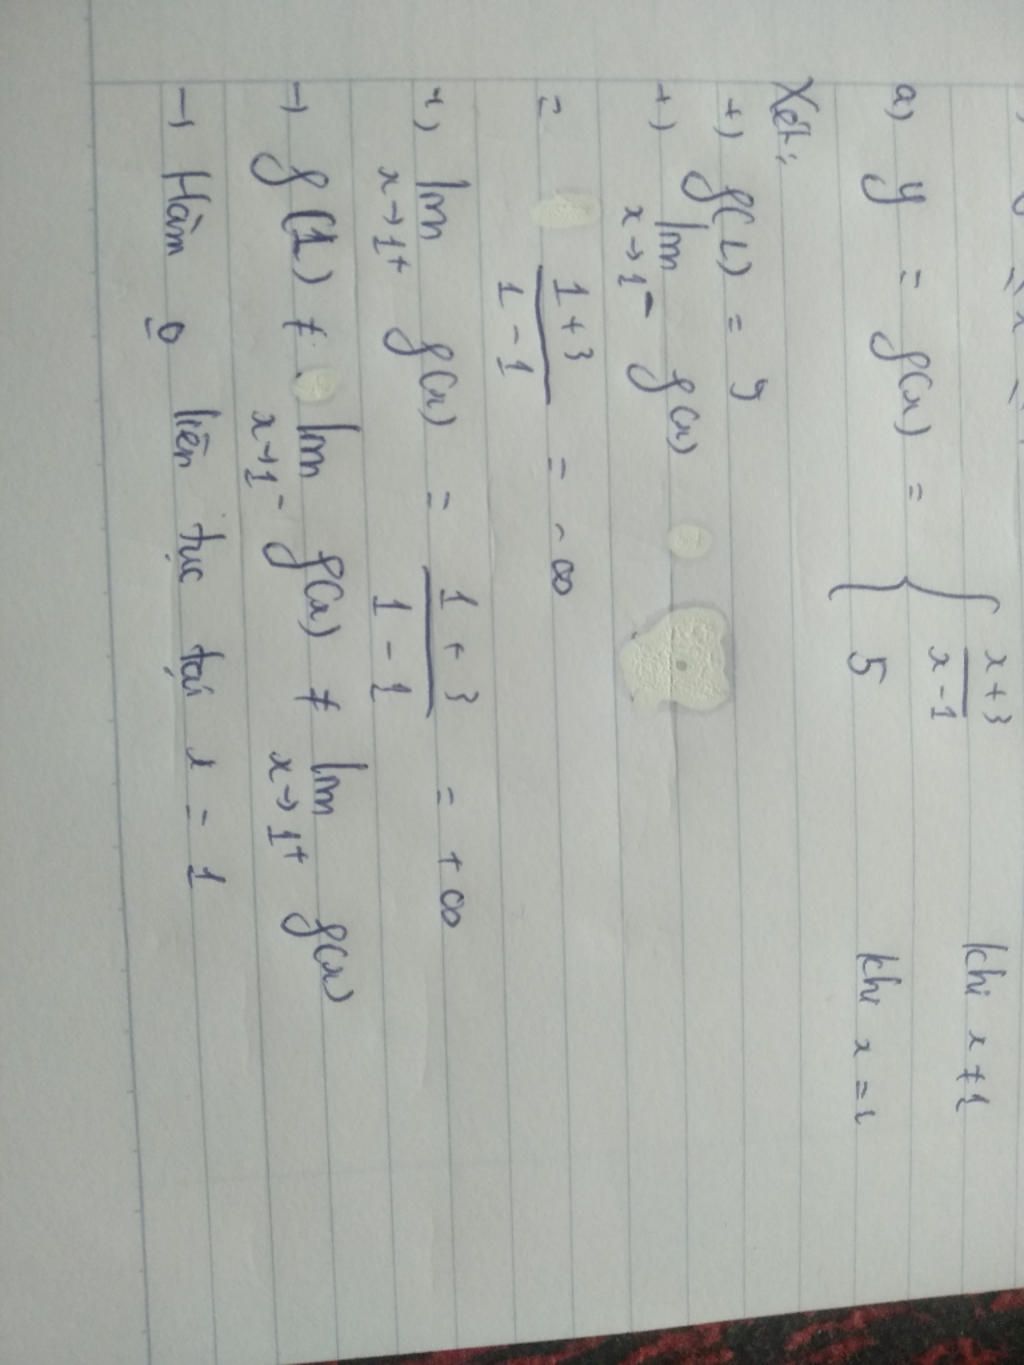 a) y = f(x) = { x+3 / x-1 khi x ≠ 1
5 khi x = 1
Xét:
+) f(1) = 5
+) lim x→1⁻ f(x)
= 1+3 / 1-1 = -∞
+) lim x→1⁺ f(x) = 1+3 / 1-1 = +∞
→ f(1) ≠ lim x→1⁻ f(x) ≠ lim x→1⁺ f(x)
→ Hàm o̱ liên tục tại x = 1